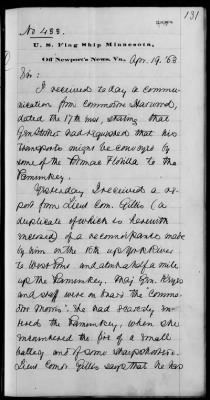 131
No 433.
U. S. Flag Ship Minnesota,
Off Newport's News, Va., Apr. 19. '63
Sir:
I received to day a commu-
nication from Commodore Harwood,
dated the 17th inst, stating that
Gen. had requested that his
transports might be conveyed by
some of the Potomac Flotilla to the
Pamunkey.
Yesterday I received a re-
port from Lieut Com. Gillis (a
duplicate of which is herewith
inclosed) of a reconnoissance made
by him on the 16th up York River
to West Point and about half a mile
up the Pamunkey. Maj. Gen. Keyes
and staff were on board the "Commo-
dore Morris". She had scarcely en-
tered the Pamunkey, when she
encountered the fire of a small
battery and of some sharpshooters.
Lieut Comdr Gillis says that he has